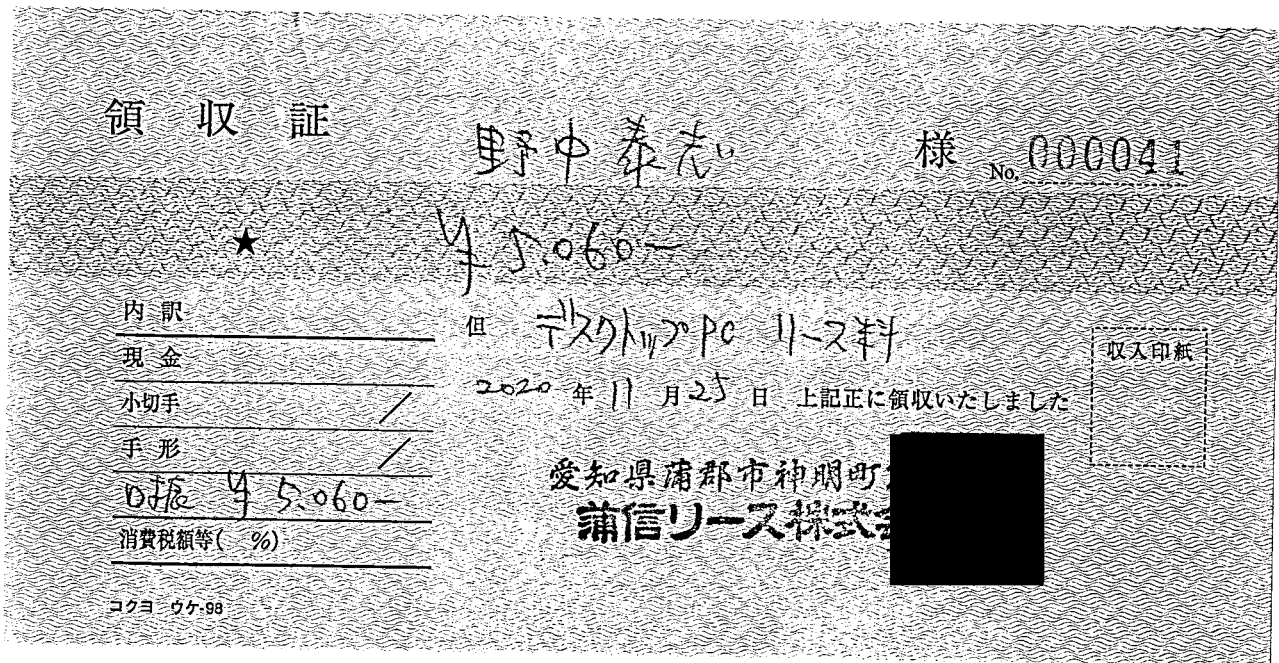 領収証
野中泰志 様 No. 000041
★ ¥5,060-
内訳
現金
小切手 /
手形 /
口振 ¥5,060-
消費税額等( %)
コクヨ ウケ-98
但 デスクトップPC リース料
2020年11月25日 上記正に領収いたしました
収入印紙
愛知県蒲郡市神明町
蒲信リース株式会